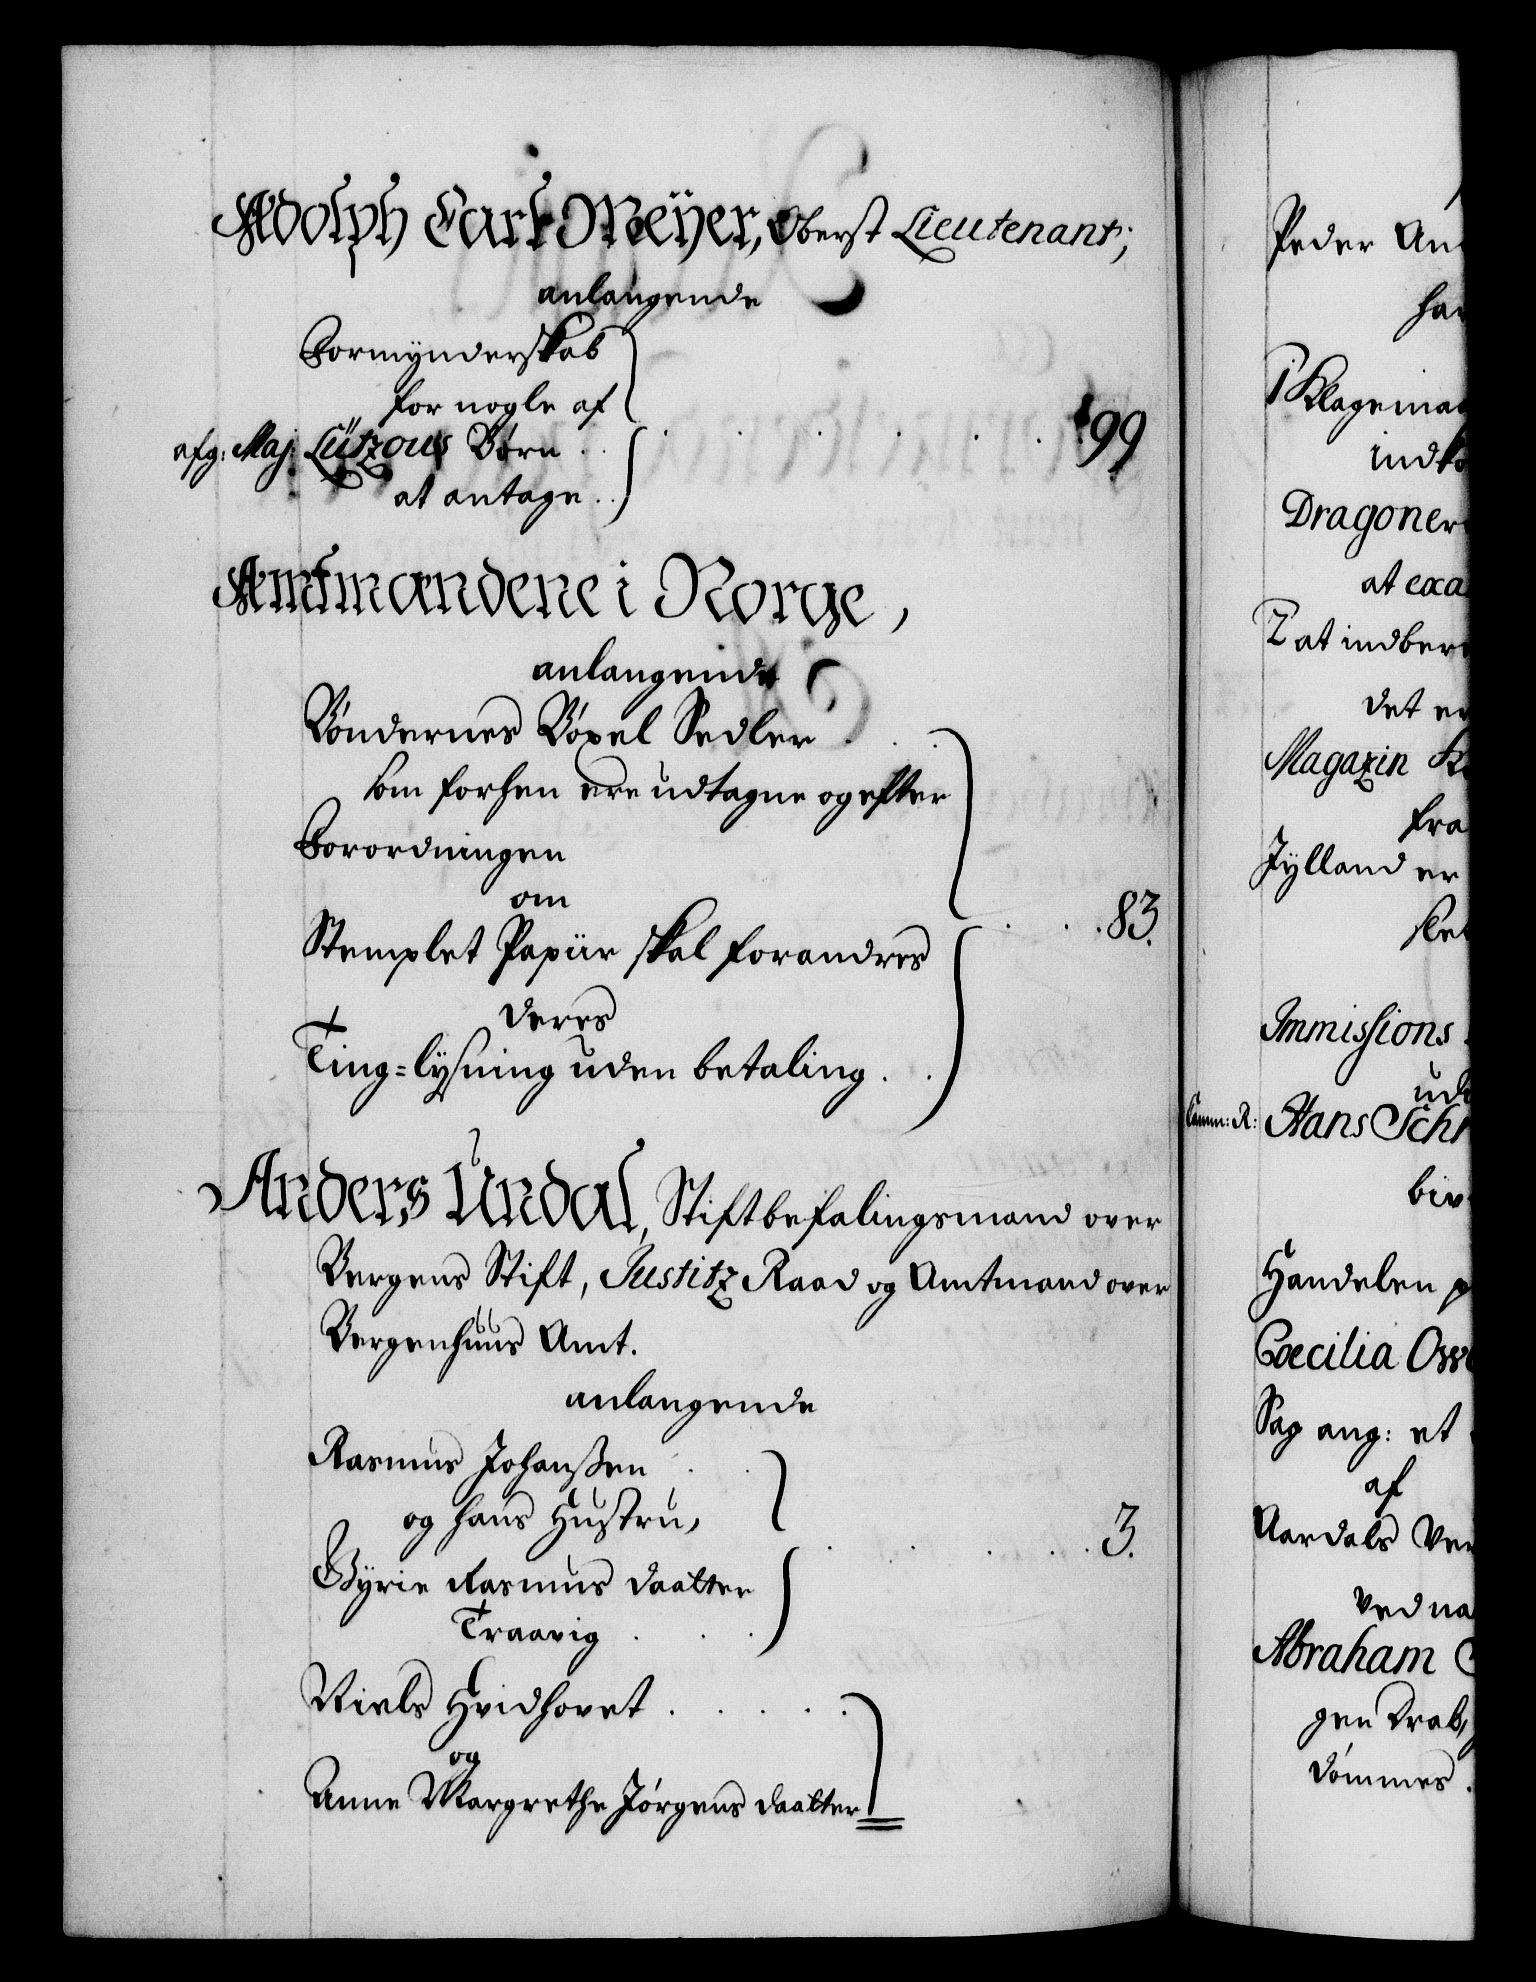 Adolph Carl Meÿer, Oberst Lieutenant;
anlangende
Formÿnderskab
for nogle af
afg: Maj: Lützous Börn . .
at antage . . . . . . . . 99
Amtmændene i Norge,
anlangende
Böndernes Böxel Sedler . . .
som forhen ere udtagne og efter
Forordningen
om
Stemplet Papiir skal forandres . . . 83.
deres
Ting=lÿsning uden betaling . .
Anders Undal, Stiftbefalingsmand over
Bergens Stift, Justitz Raad og Amtmand over
Bergenhuus Amt.
anlangende
Rasmus Johanßen . .
og hans Hustru,
Gÿrie Rasmus daatter . . . . . 3.
Traavig . . .
Niels Hvidhovet . . . . .
og
Anne Margrethe Jörgens daatter
Peder An
han
i Klagemaa
indko
Dragoner
at exa
I at indber
det er
Magazin K
fra
Jÿlland er
slet
Immissions
udt
Camm: R: Hans Schr
biv
Handelen p
Coecilia Ow
Sag ang: et
af
Aardals Ver
ved na
Abraham
gen Krab,
dömmes .